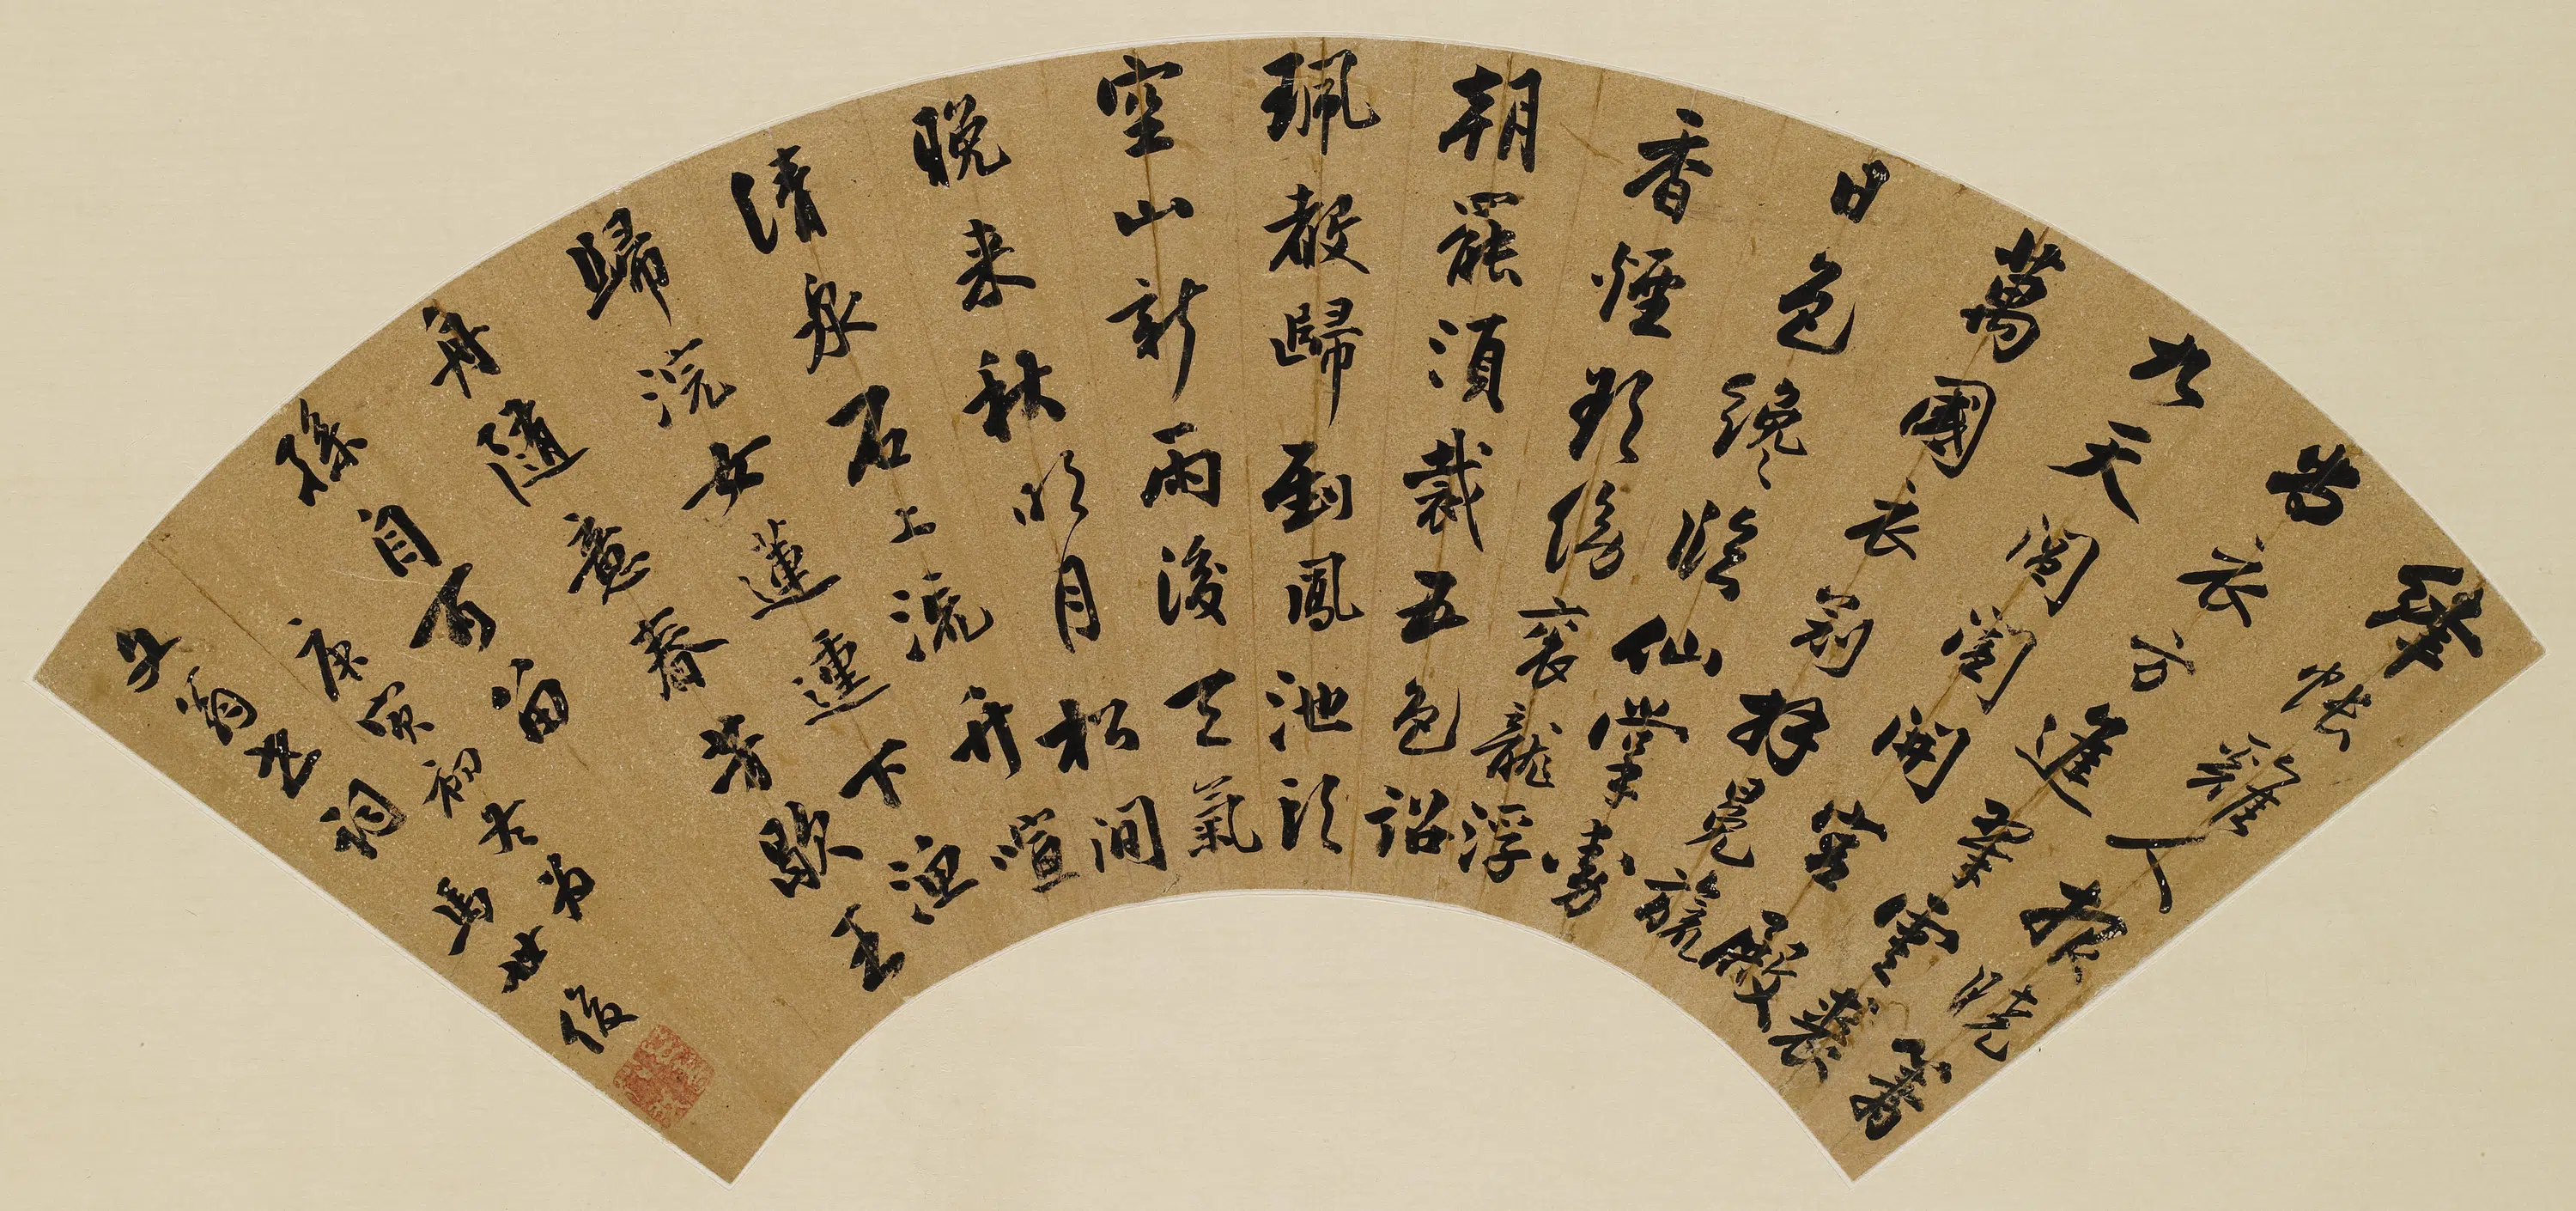 絳幘雞人報曉籌
尚衣方進翠雲裘
九天閶闔開宮殿
萬國衣冠拜冕旒
日色纔臨仙掌動
香煙欲傍袞龍浮
朝罷須裁五色詔
珮聲歸到鳳池頭
空山新雨後天氣
晚来秋明月松間
清泉石上流竹喧
歸浣女蓮動下漁
舟隨意春芳歇王
孫自可留
庚寅初冬為
子眉老詞
馬世俊